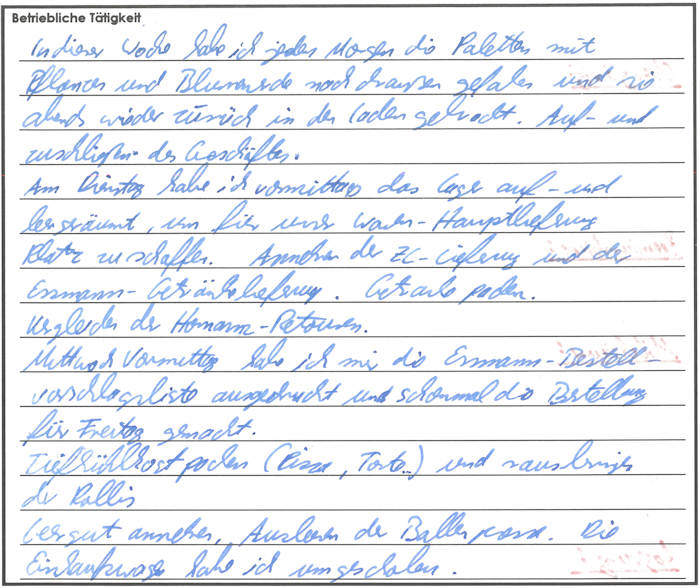 Betriebliche Tätigkeit
In dieser Woche habe ich jeden Morgen die Paletten mit
Pflanzen und Blumenerde nach draussen gefahren und sie
abends wieder zurück in den Laden gebracht. Auf- und
zuschließen des Geschäftes.
Am Dienstag habe ich vormittags das Lager auf- und
leergeräumt, um für unser Waren-Hauptlieferung
Platz zu schaffen. Annehmen der ZC-Lieferung und der
Ensmann-Getränkelieferung. Getränke packen.
Vergleichen der Homann-Retouren.
Mittwoch Vormittag habe ich mir die Ensmann-Bestell-
vorschlagsliste ausgedruckt und schonmal die Bestellung
für Freitag gemacht.
Tiefkühlkost packen (Pizza, Torte..) und rausbringen
der Rollis
Leergut annehmen, Ausleeren der Ballenpresse. Die
Einkaufswagen habe ich umgeschoben.